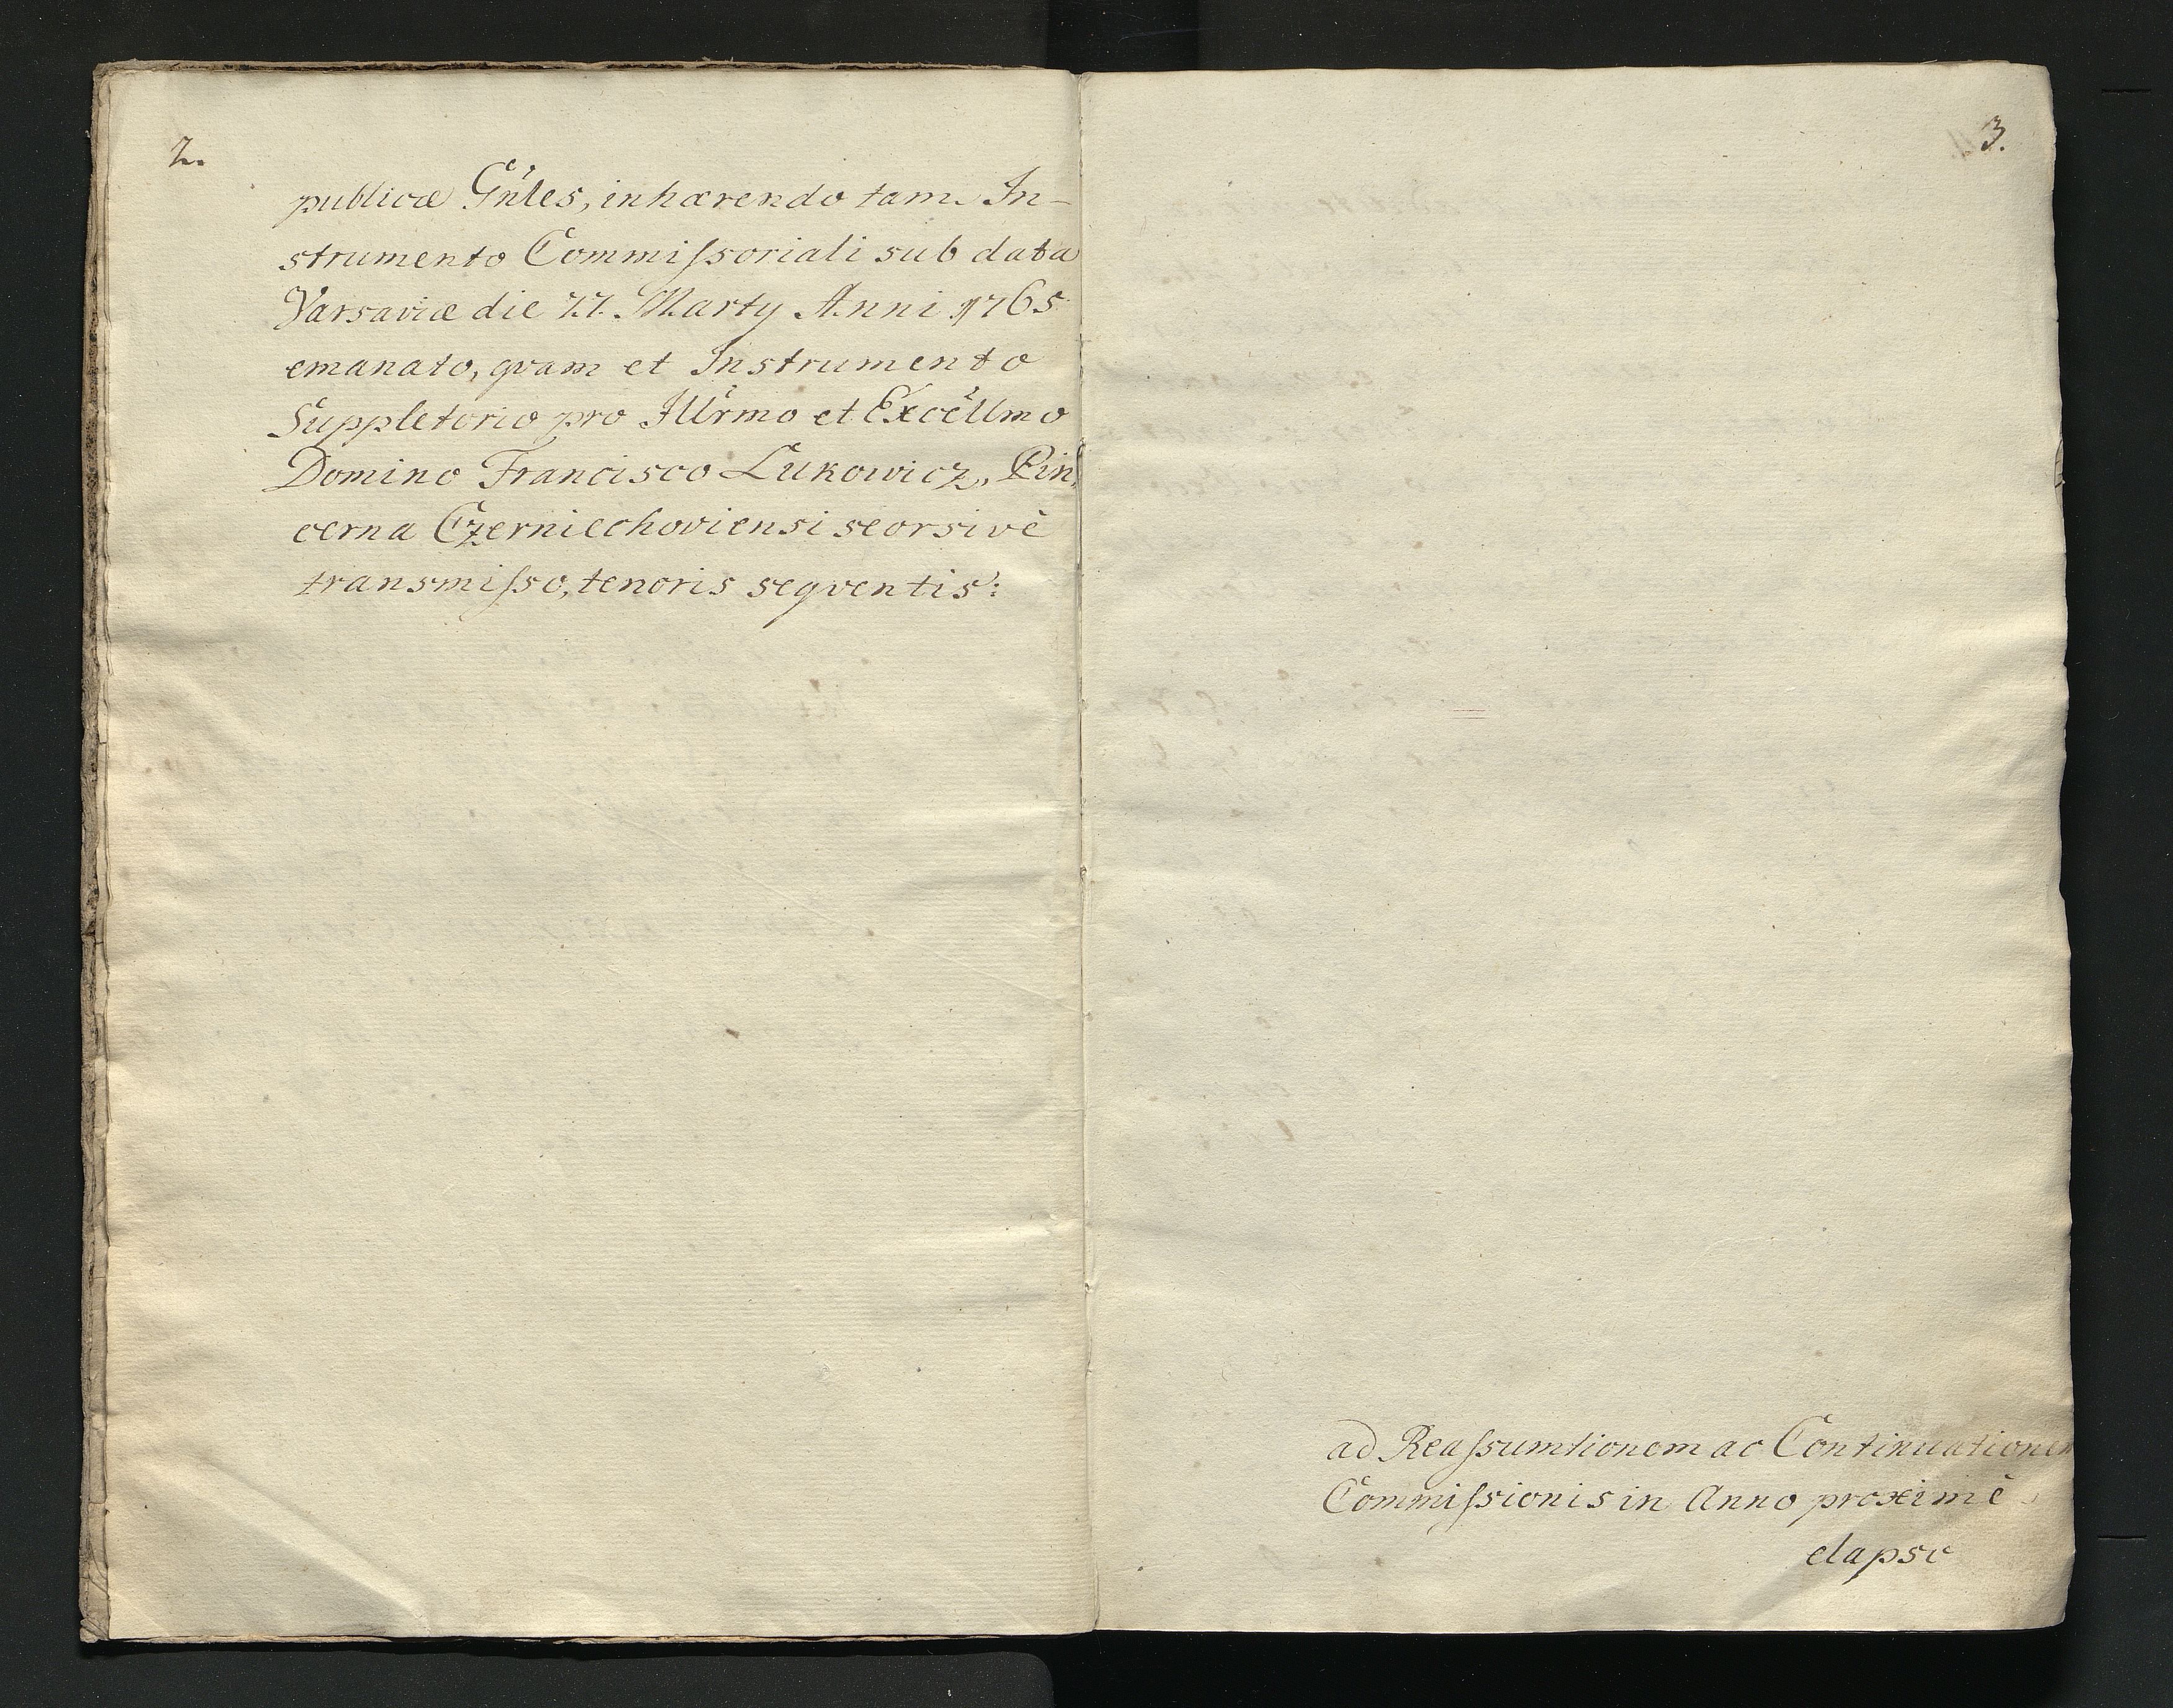 2.
publicæ Gñles, inhærendo tam In-
strumento Commiſsoriali sub data
Varsaviæ die 22. Marty Anni 1765
emanato, qvam et Instrumento
Suppletorio pro Illr̃mo et Excell̃mo
Domino Francisco Lukowicz, Pin,
cerna Czerniechoviensi seorsivè
transmiſso, tenoris seqventis:
3.
ad Reaſsumtionem ac Continuationem
Commiſsionis in Anno proximè
elapso